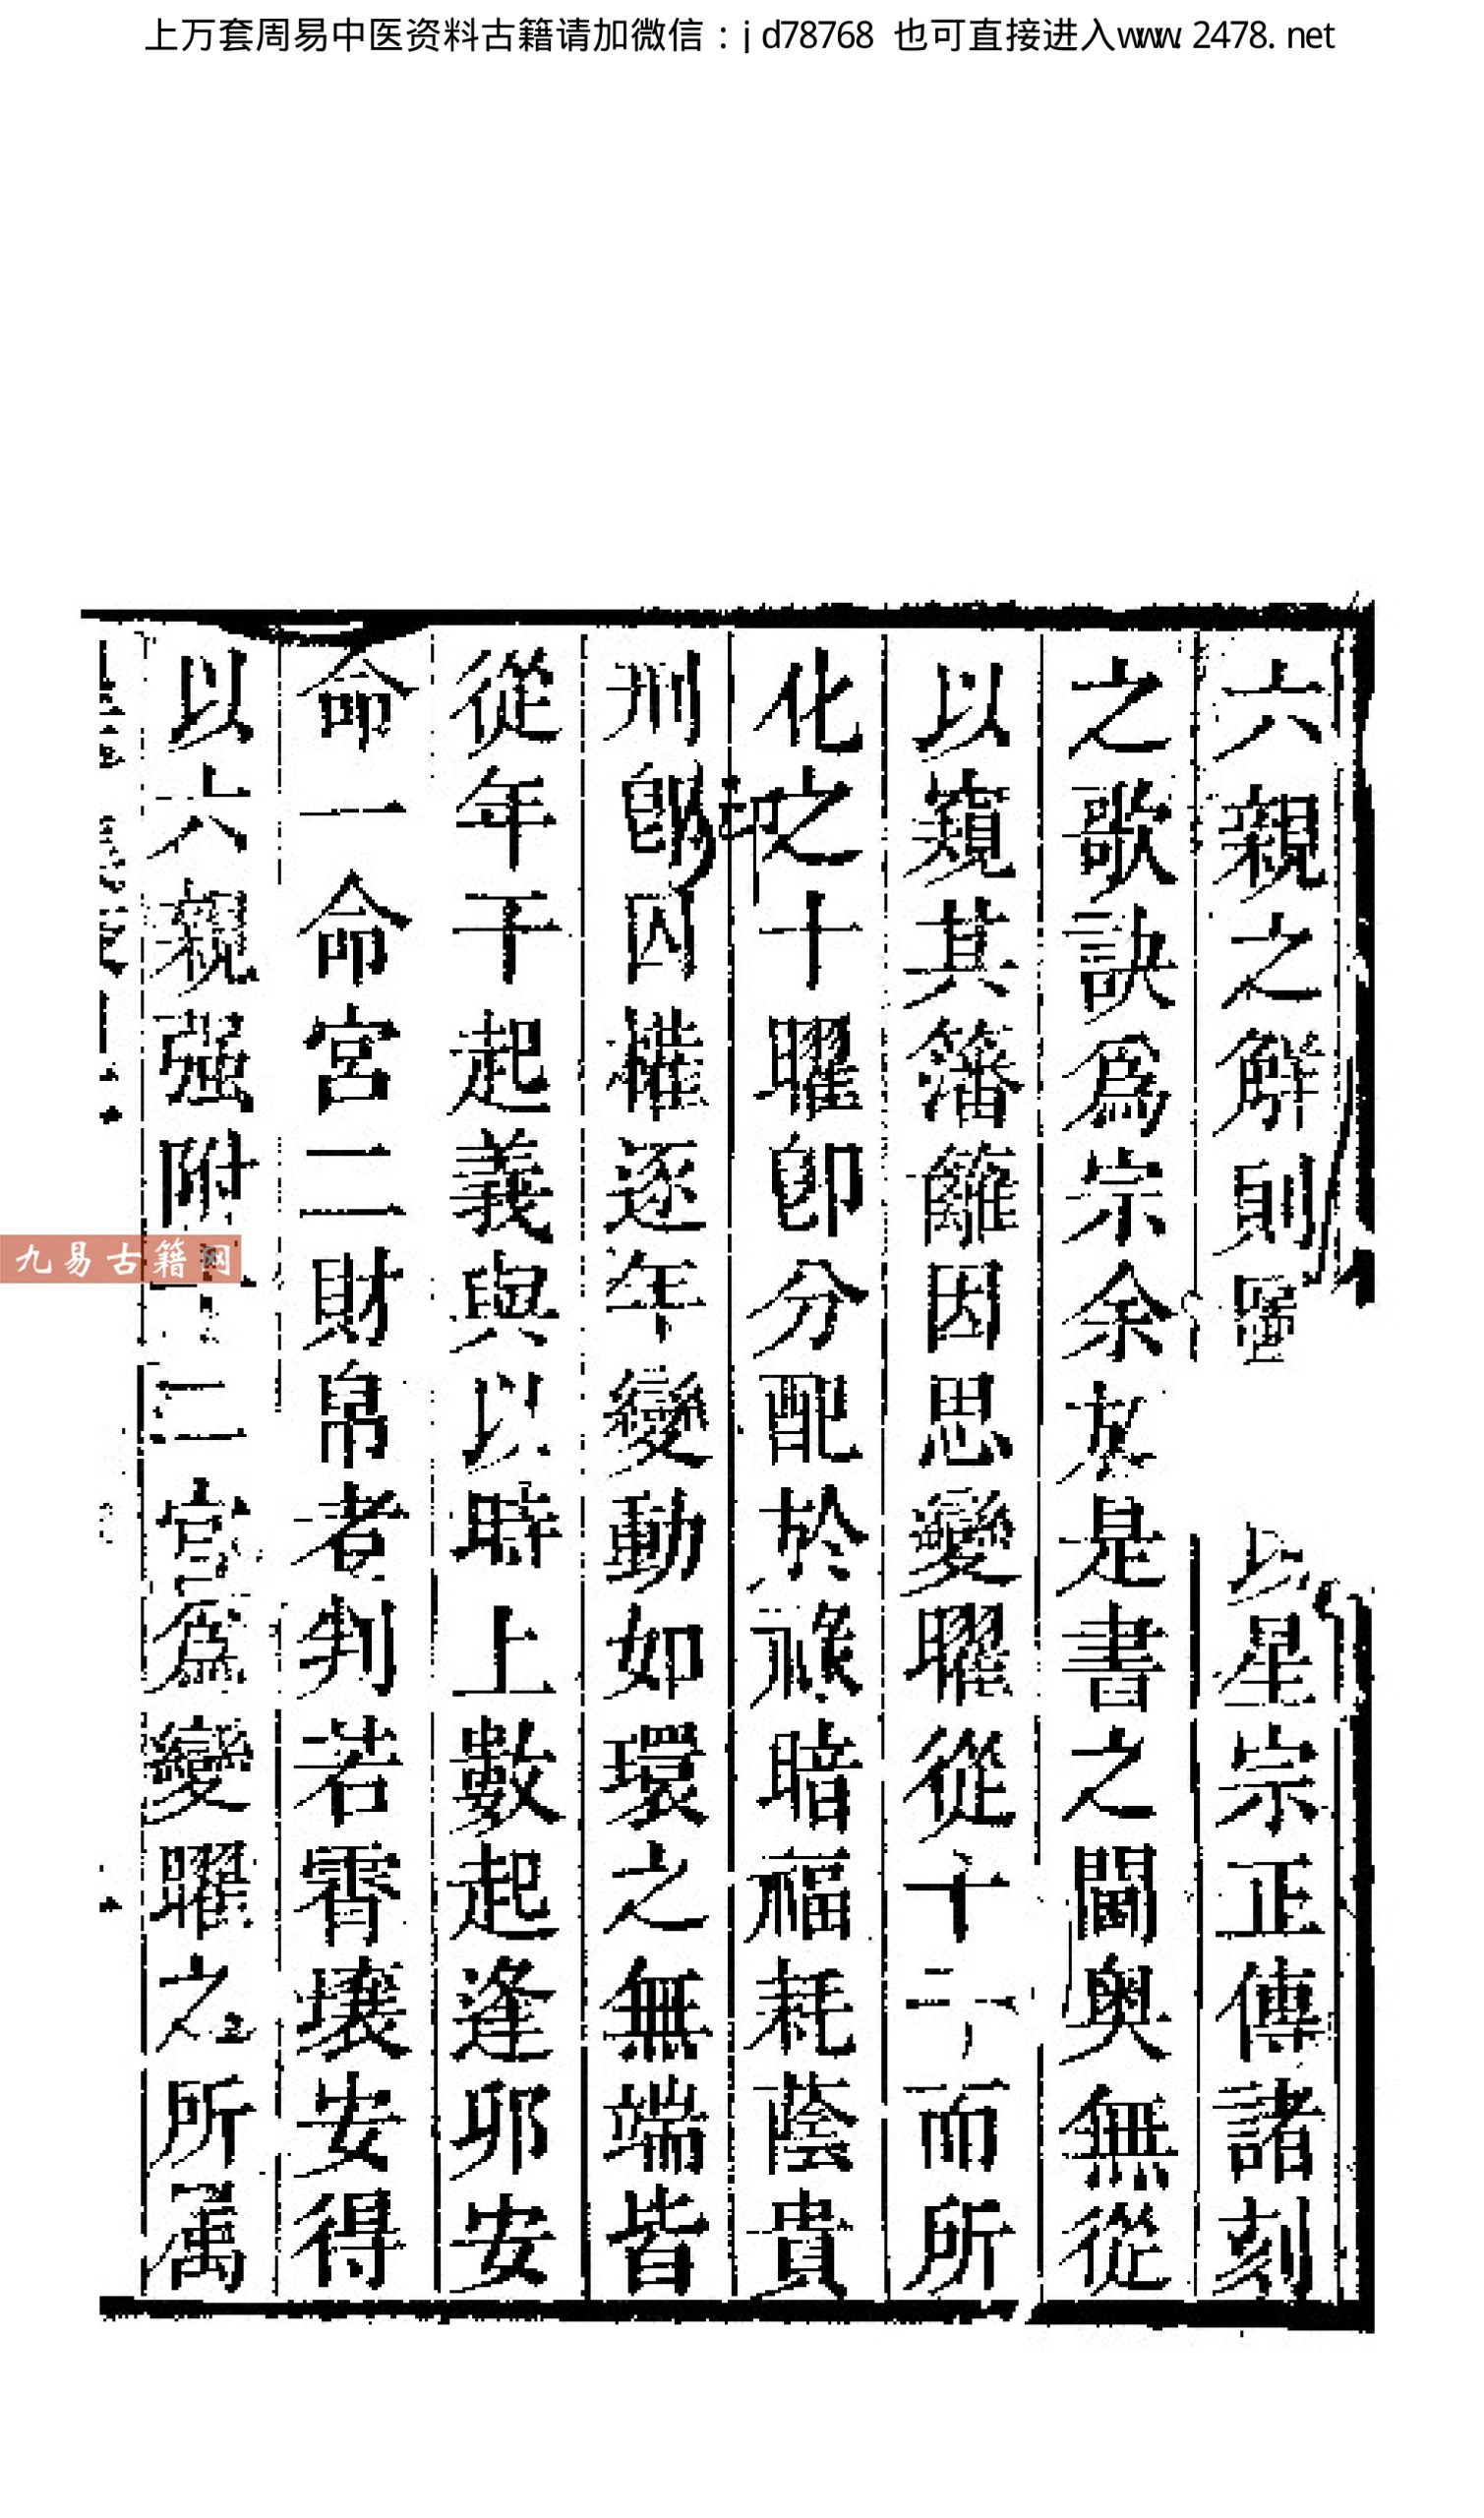 上万套周易中医资料古籍请加微信：jd78768 也可直接进入www.2478.net
六親之解則 以星宗正傳諸刻
之歌訣爲宗余於是書之閫奥無從
以窺其籓籬因思變曜從十二而所
化之十曜卽分配於祿暗福耗蔭貴
刑印囚權逐年變動如環之無端皆
從年干起義與以時上數起逢邜安
命一命宮二財帛者判若霄壤安得
以六親强附十二宫爲變曜之所属
九易古籍网